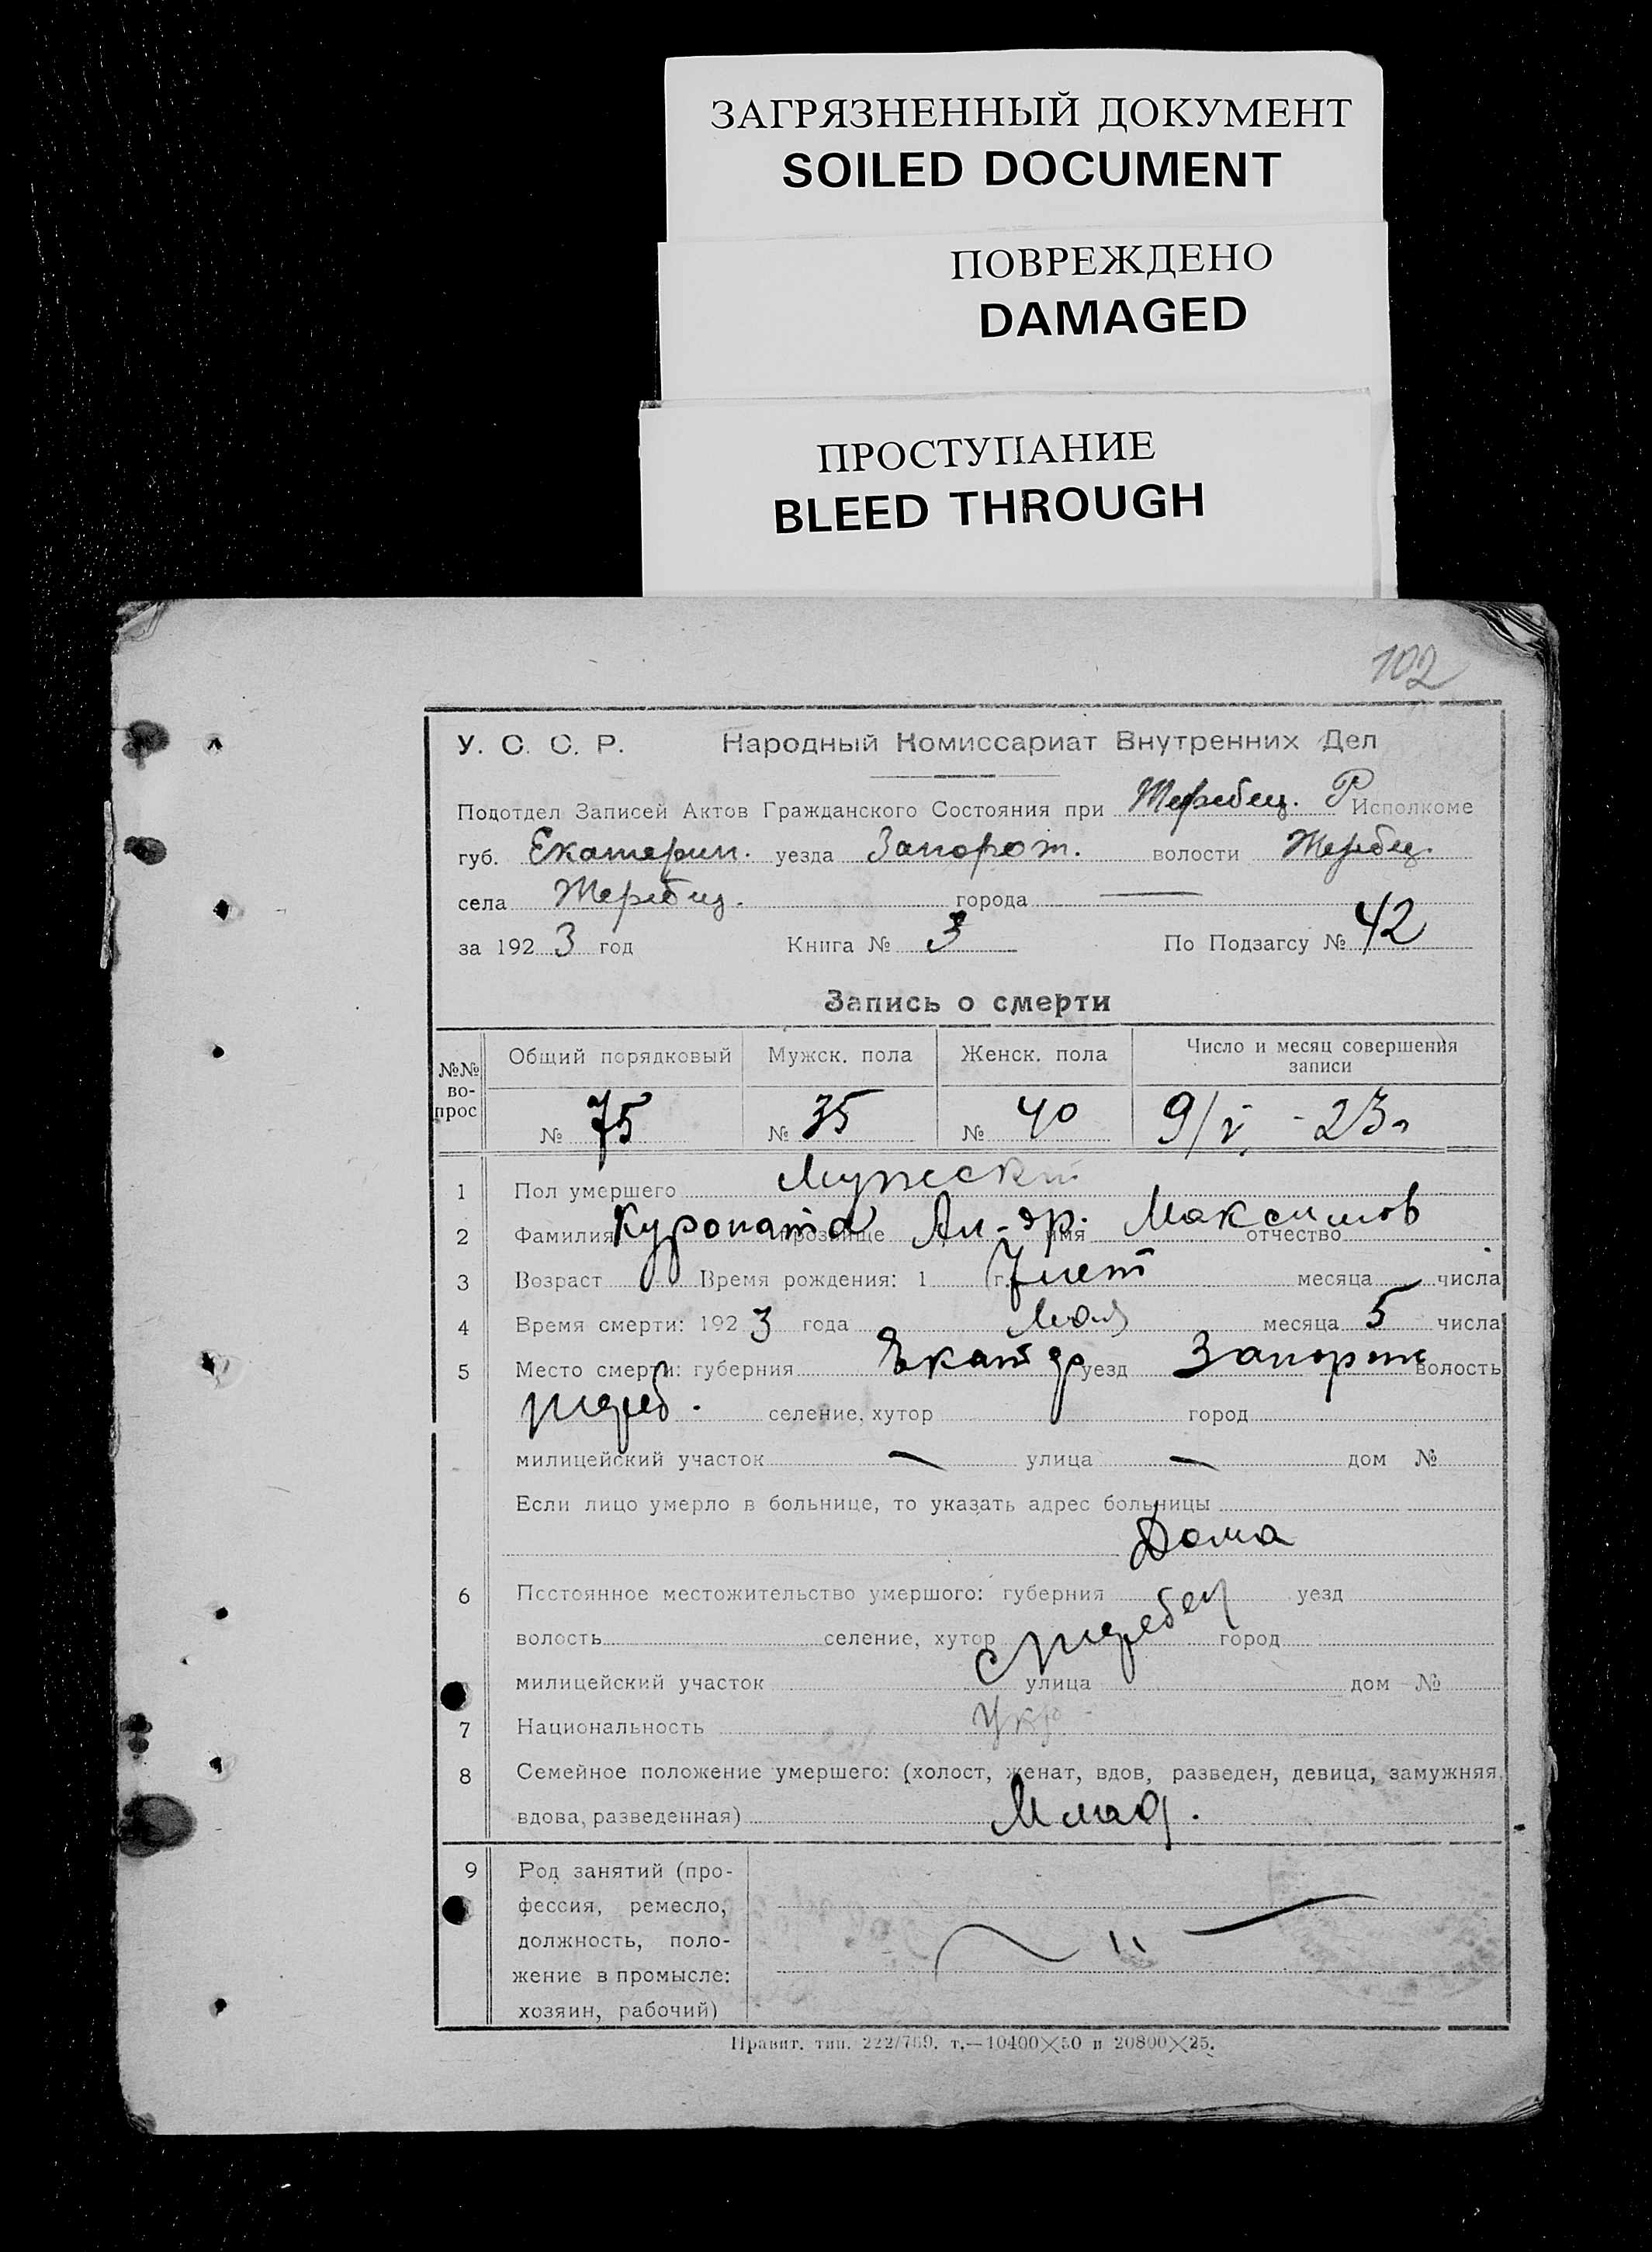 ЗАГРЯЗНЕННЫЙ ДОКУМЕНТ
SOILED DOCUMENT
ПОВРЕЖДЕНО
DAMAGED
ПРОСТУПАНИЕ
BLEED THROUGH
102
У. С. С. Р. Народный Комиссариат Внутренних Дел
Подотдел Записей Актов Гражданского Состояния при Жеребец. Р Исполкоме
губ. Екатерин. уезда Запорож. волости Жеребец.
села Жеребец. города —
за 1923 год Книга № 3 По Подзагсу № 42
Запись о смерти
№№ во-прос Общий порядковый Мужск. пола Женск. пола Число и месяц совершения записи
№ 75 № 35 № 40 9/V - 23 г
1 Пол умершего Мужский
2 Фамилия Куропата прозвище Ан-др. имя Максимов отчество
3 Возраст Время рождения: 1 г. 7 лет месяца числа
4 Время смерти: 1923 года Мая месяца 5 числа
5 Место смерти: губерния Екат уезд Запорож волость
Жереб. селение, хутор город
милицейский участок — улица — дом №
Если лицо умерло в больнице, то указать адрес больницы
Дома
6 Постоянное местожительство умершого: губерния уезд
волость селение, хутор с Жеребец город
милицейский участок улица дом №
7 Национальность Укр
8 Семейное положение умершего: (холост, женат, вдов, разведен, девица, замужняя,
вдова, разведенная) Млад.
9 Род занятий (про-
фессия, ремесло,
должность, поло-
жение в промысле:
хозяин, рабочий)
— " —
Правит. тип. 222/789. т.—10400×50 и 20800×25.